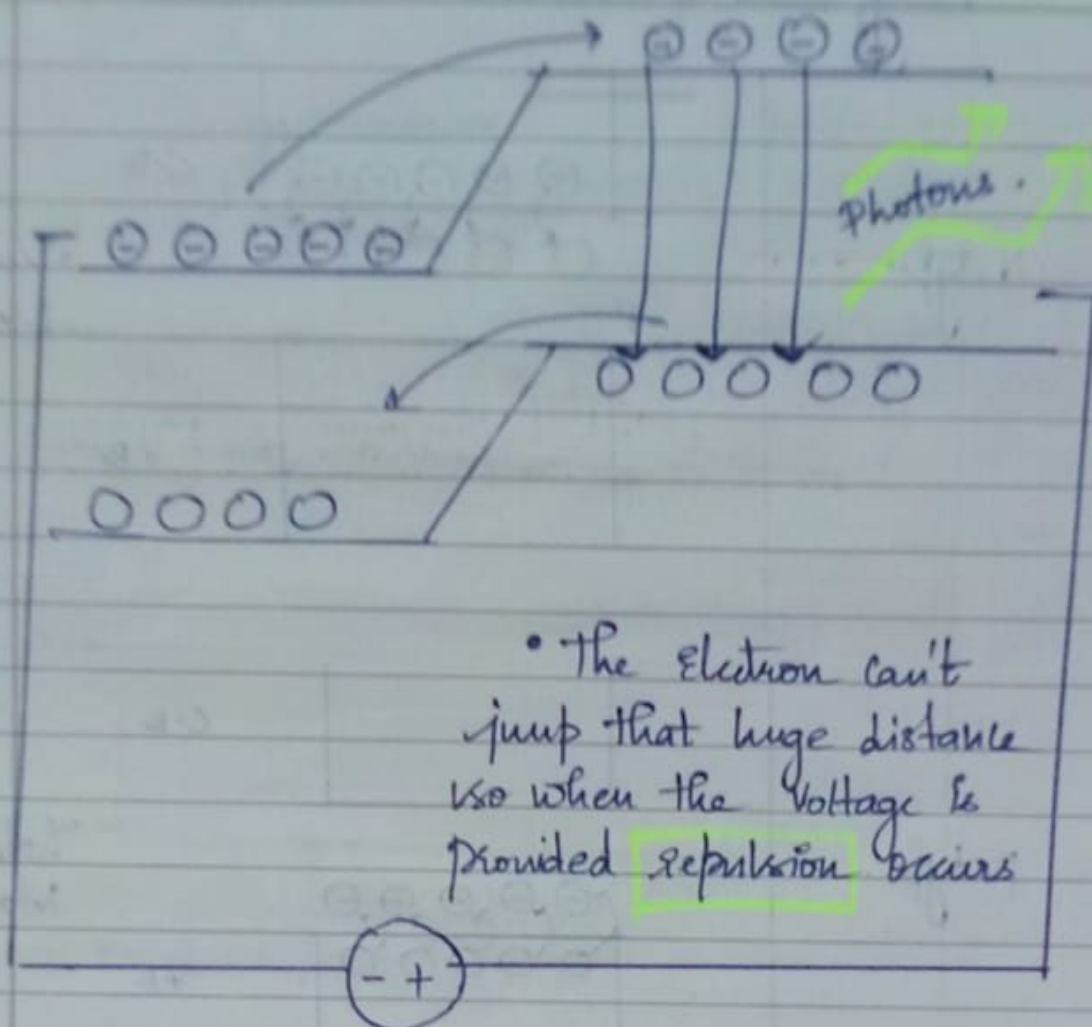 Photons.
• The Electron can't
jump that huge distance
so when the Voltage is
provided repulsion occurs
- +